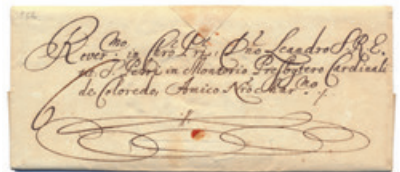 Rever.mo in Chro Pri, Dño Leandro S. R. E.
tit. S. Petri in Montorio Presbytero Cardinali
de Coloredo, Amico Nro Char.mo